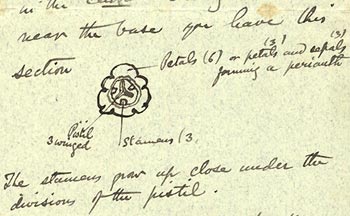 in the
near the base you have this
section
Petals (6) or petals (3) and sepals (3)
forming a perianth
Pistil
3 winged
Stamens (3.
The stamens grow up close under the
divisions of the pistil.